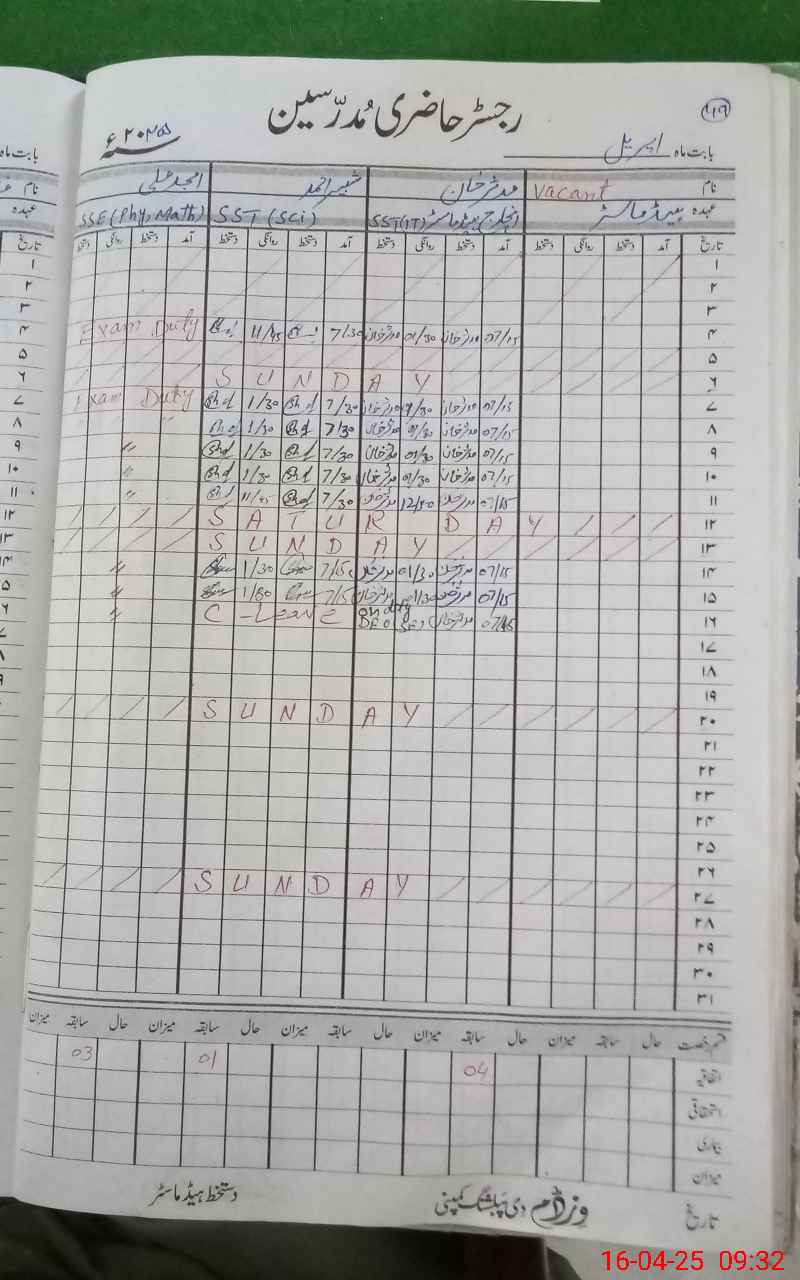 رجسٹر حاضری مُدرّسین
۲۰۲۵ء
بابت ماہ اپریل
نام Vacant مدثر خان شبیر احمد امجد علی
عہدہ ہیڈ ماسٹر انچارج ہیڈ ماسٹر SST(IT) SST (Sci) SSE (Phy, Math)
تاریخ آمد دستخط روانگی دستخط آمد دستخط روانگی دستخط آمد دستخط روانگی دستخط آمد دستخط روانگی دستخط
۱
۲
۳
۴ 07/15 مدثر خان 01/30 مدثر خان 7/30 11/45 Exam Duty
۵
۶ SUNDAY
۷ 07/15 مدثر خان 01/30 مدثر خان 7/30 1/30 Exam Duty
۸ 07/15 مدثر خان 01/30 مدثر خان 7/30 1/30 "
۹ 07/15 مدثر خان 01/30 مدثر خان 7/30 1/30 "
۱۰ 07/15 مدثر خان 01/30 مدثر خان 7/30 1/30 "
۱۱ 07/15 مدثر خان مدثر خان 7/30 11/45 "
۱۲ SATURDAY
۱۳ SUNDAY
۱۴ 07/15 مدثر خان 01/30 مدثر خان 7/15 1/30 "
۱۵ 07/15 مدثر خان 01/30 مدثر خان 7/15 1/30 "
۱۶ 07/15 مدثر خان on duty DEO C-Leave "
۱۷
۱۸
۱۹
۲۰ SUNDAY
۲۱
۲۲
۲۳
۲۴
۲۵
۲۶
۲۷ SUNDAY
۲۸
۲۹
۳۰
۳۱
قسم رخصت حال سابقہ میزان حال سابقہ میزان حال سابقہ میزان حال سابقہ میزان
اتفاقیہ 04 01 03
استحقاقی
بیماری
میزان
تاریخ وزڈم دی پبلشنگ کمپنی دستخط ہیڈ ماسٹر
16-04-25 09:32